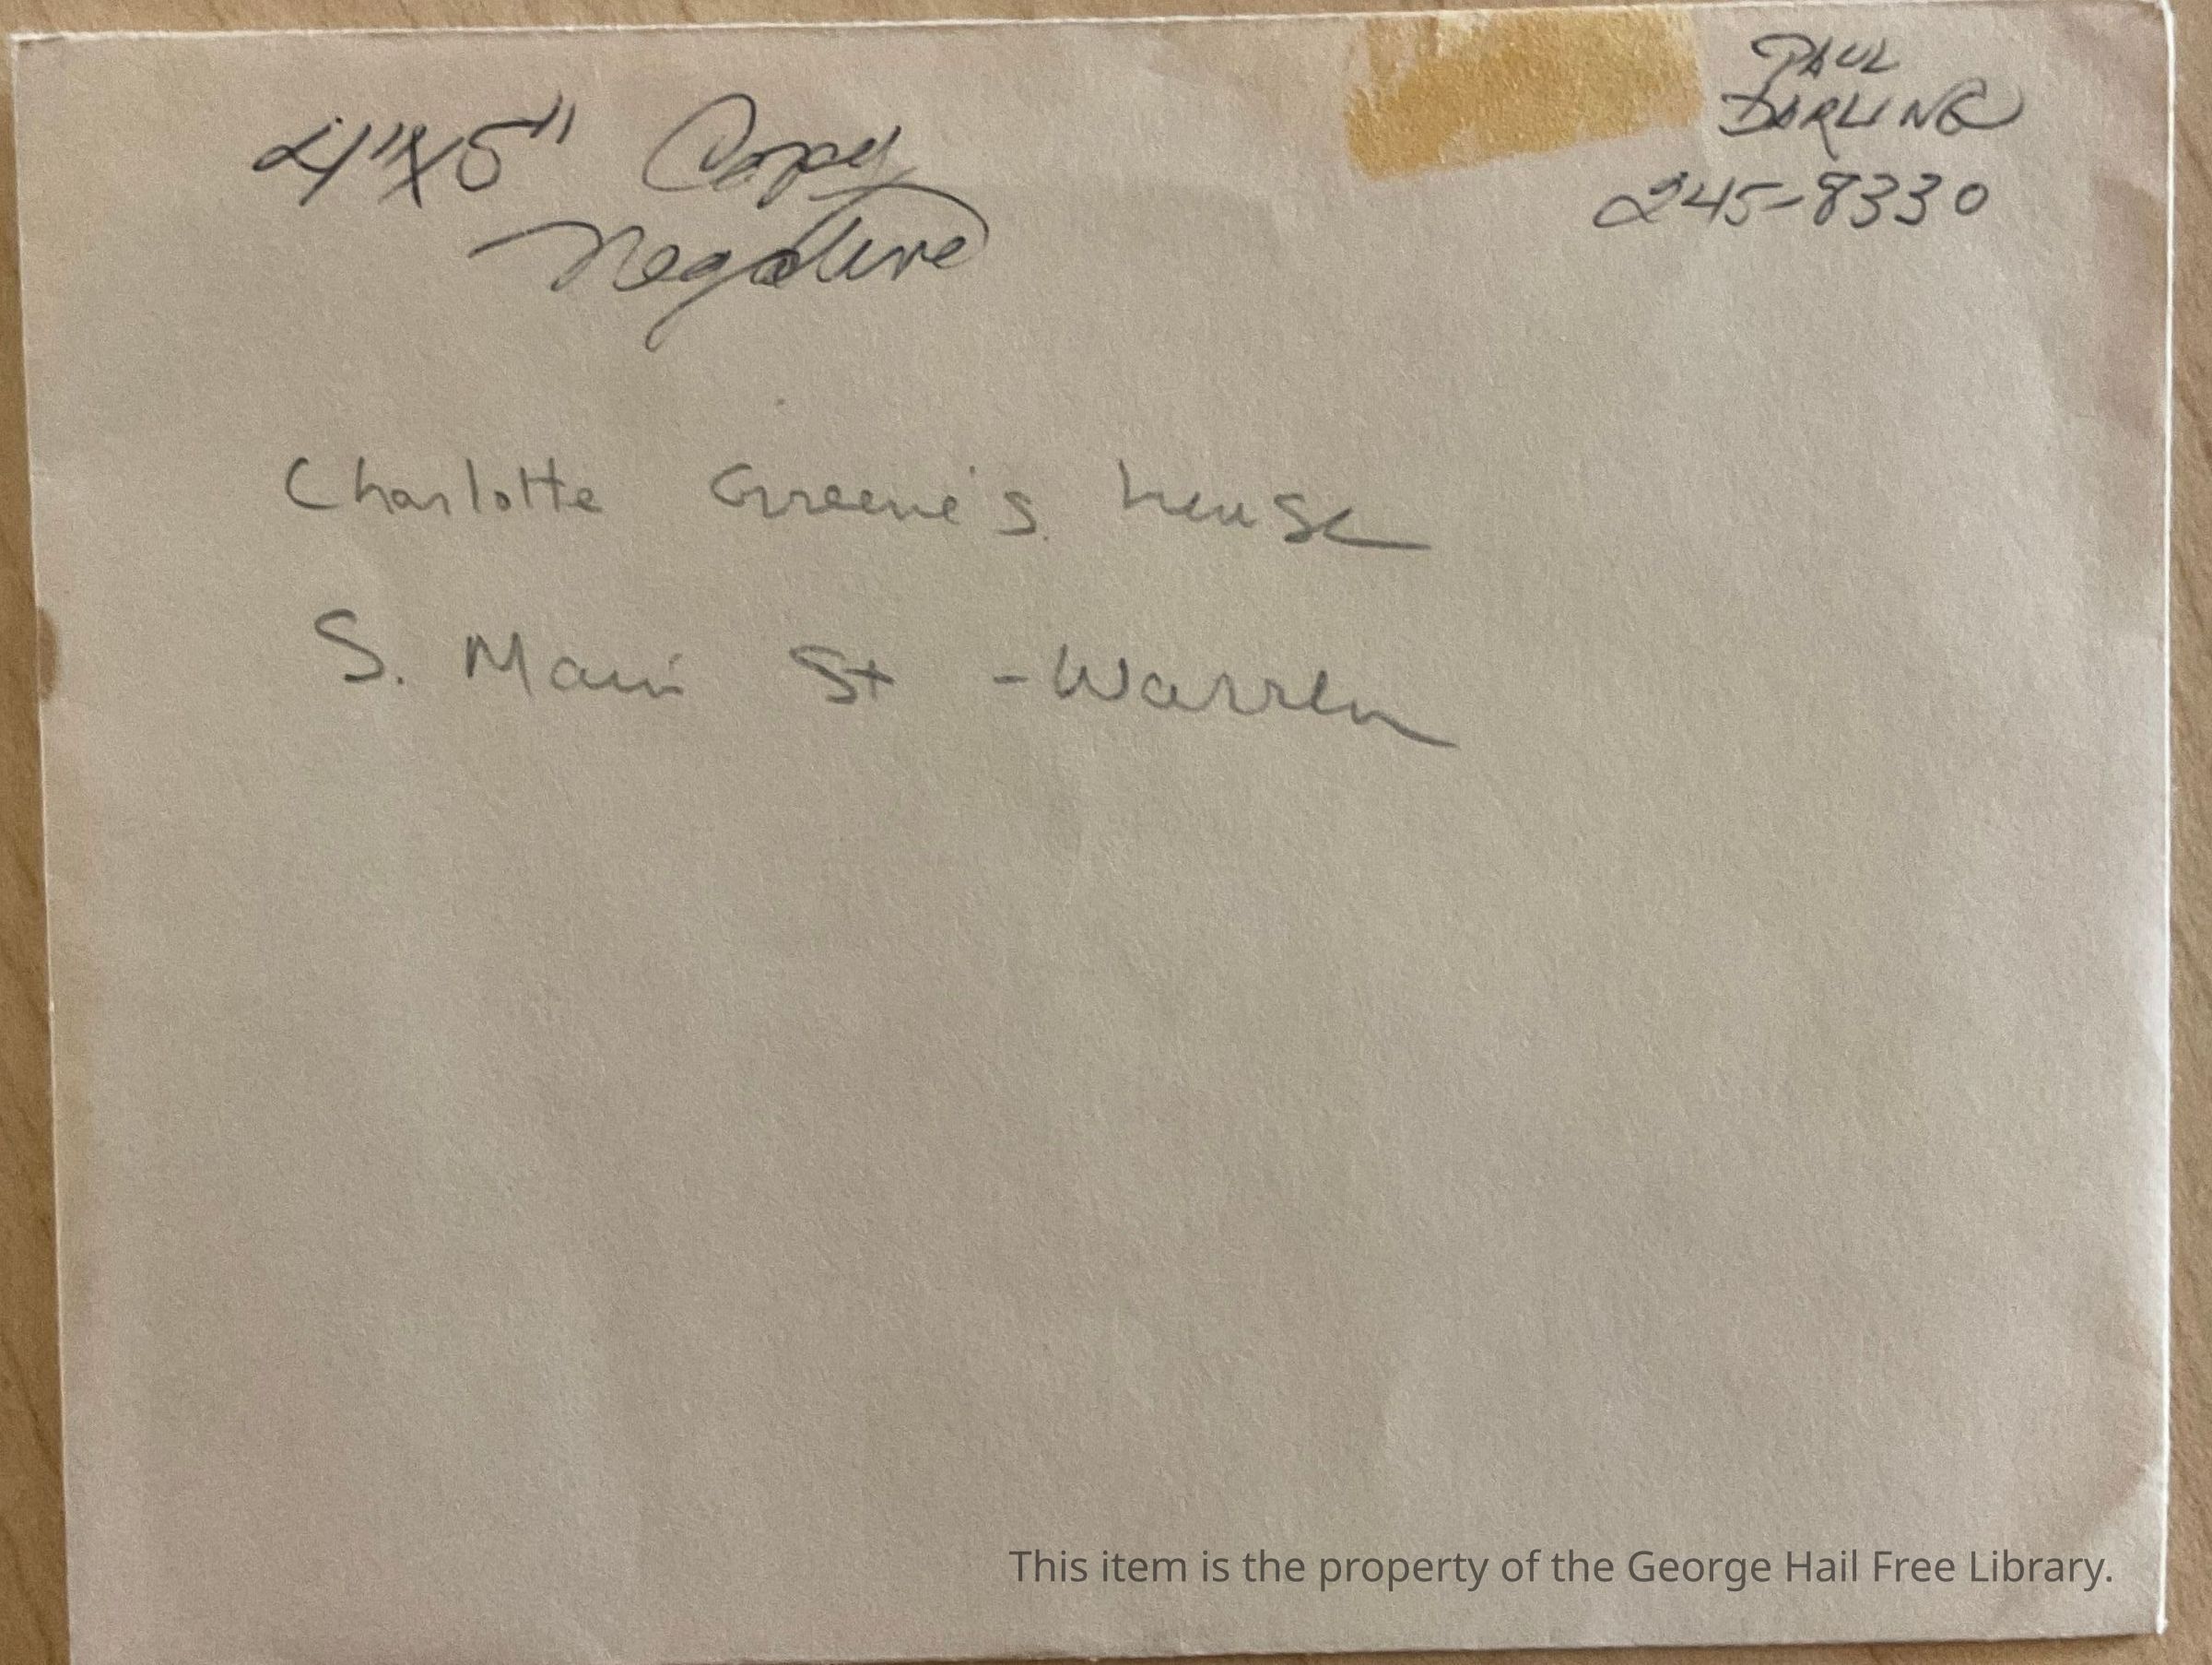 4"x5" Copy
Negative
PAUL
DARLING
245-8330
Charlotte Greene's house
S. Main St - Warren
This item is the property of the George Hail Free Library.